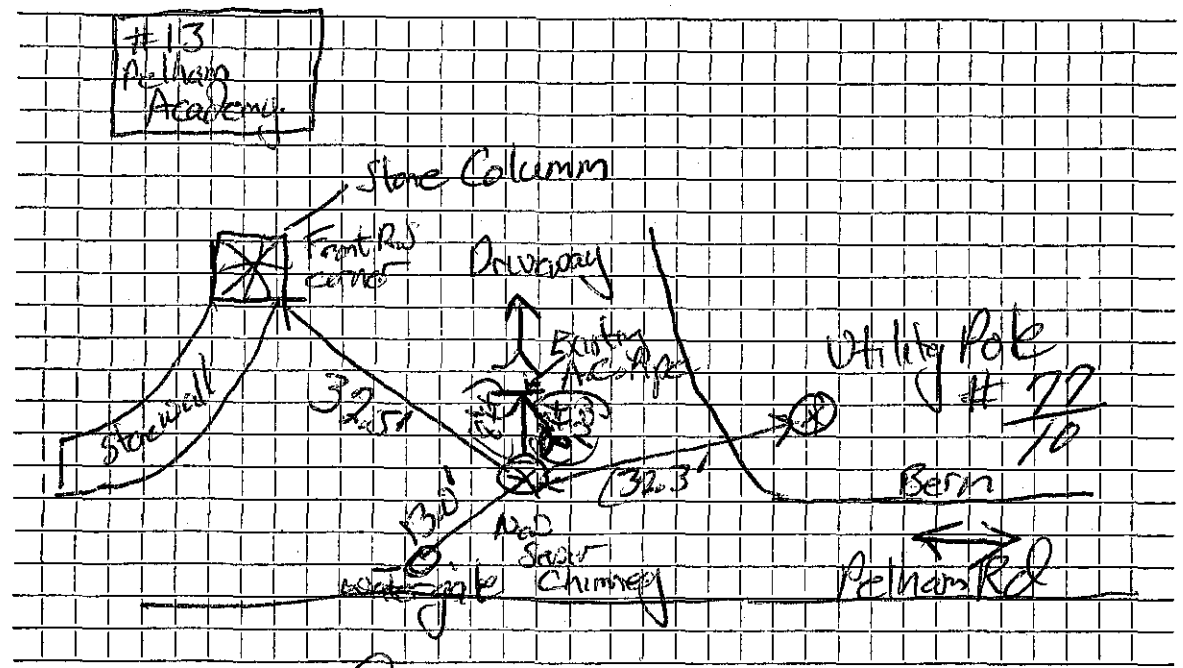 #13
Pelham
Academy
Stone Columm
Front
corner
Driveway
Existing
Utility Pole
# 77/10
Stonewall
32.5'
32.3'
13.0'
Berm
New
Sewer
Chimney
watergate
Pelham Rd